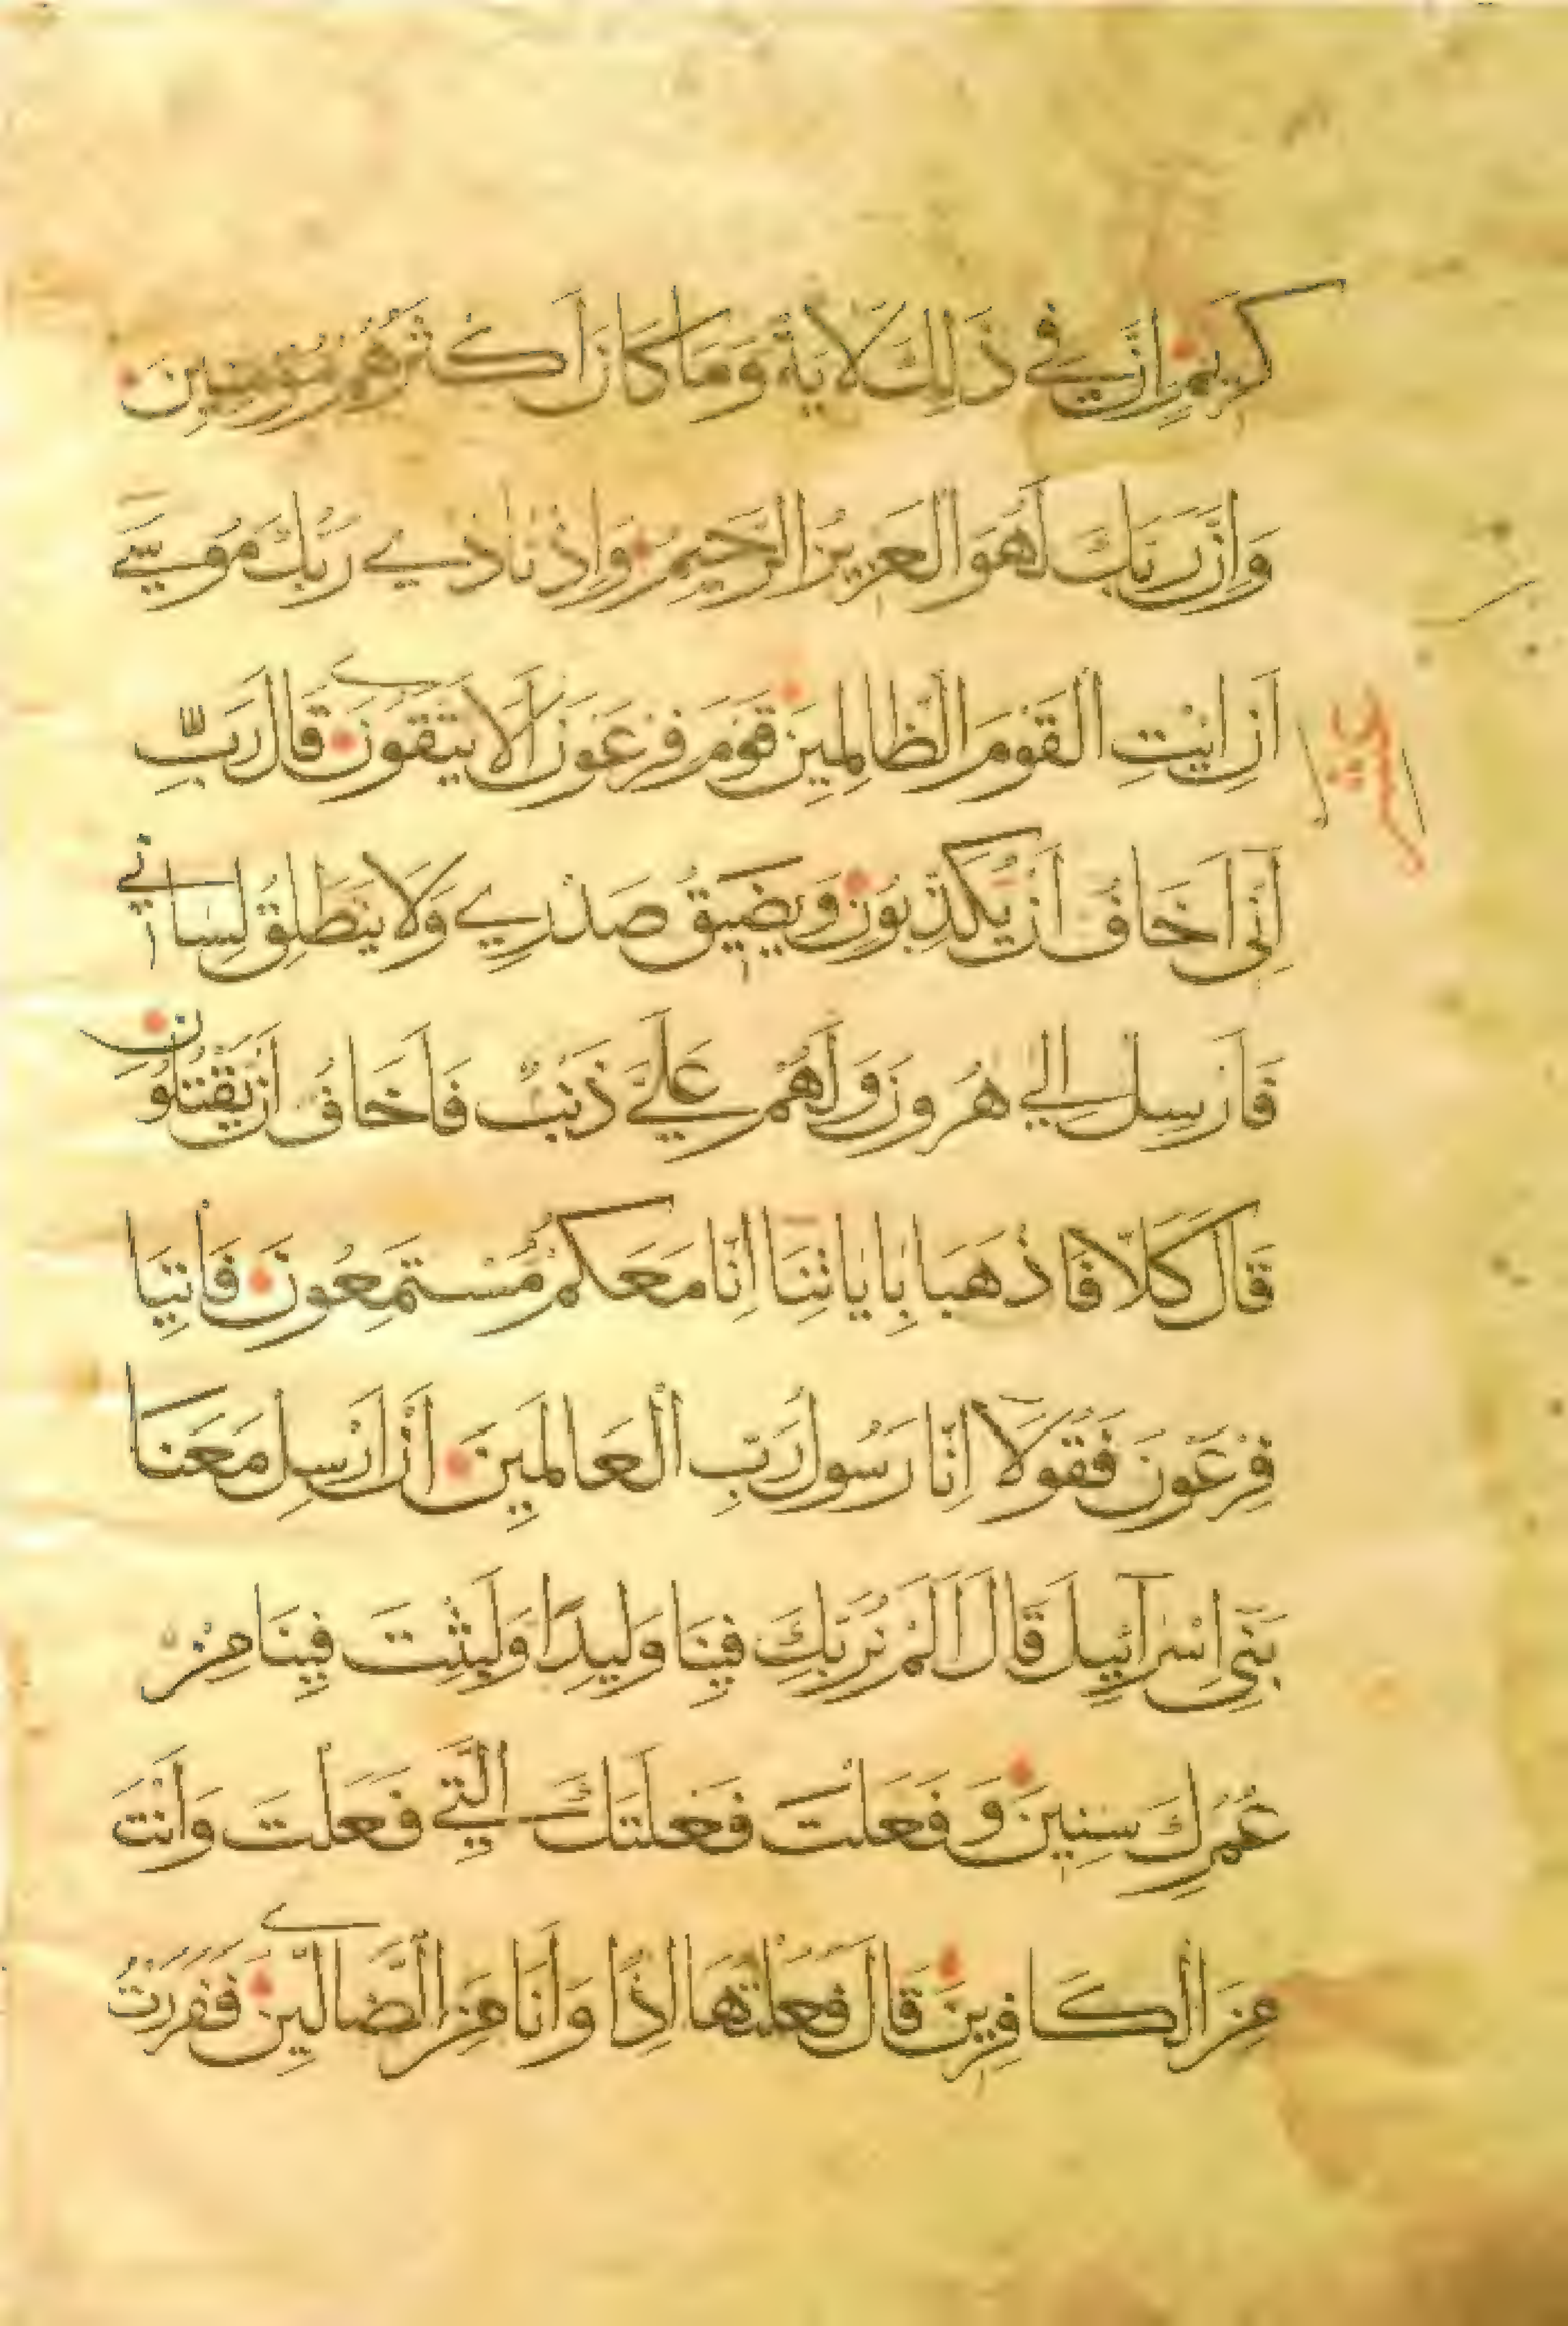 كَرِيمٍ اِنَّ فِي ذٰلِكَ لَاٰيَةً وَمَا كَانَ اَكْثَرُهُمْ مُؤْمِنِينَ
وَاِنَّ رَبَّكَ لَهُوَ الْعَزِيزُ الرَّحِيمُ وَاِذْ نَادٰي رَبُّكَ مُوسٰيٓ
اَنِ ائْتِ الْقَوْمَ الظَّالِمِينَ قَوْمَ فِرْعَوْنَ اَلَا يَتَّقُونَ قَالَ رَبِّ
اِنّٓى اَخَافُ اَنْ يُكَذِّبُونِ وَيَضِيقُ صَدْرِي وَلَا يَنْطَلِقُ لِسَانِي
فَاَرْسِلْ اِلٰي هٰرُونَ وَلَهُمْ عَلَيَّ ذَنْبٌ فَاَخَافُ اَنْ يَقْتُلُونِ
قَالَ كَلَّا فَاذْهَبَا بِاٰيَاتِنَا اِنَّا مَعَكُمْ مُسْتَمِعُونَ فَأْتِيَا
فِرْعَوْنَ فَقُولَآ اِنَّا رَسُولُ رَبِّ الْعَالَمِينَ اَنْ اَرْسِلْ مَعَنَا
بَنِىٓ اِسْرَآئِيلَ قَالَ اَلَمْ نُرَبِّكَ فِينَا وَلِيدًا وَلَبِثْتَ فِينَا مِنْ
عُمُرِكَ سِنِينَ وَفَعَلْتَ فَعْلَتَكَ الَّتِي فَعَلْتَ وَاَنْتَ
مِنَ الْكَافِرِينَ قَالَ فَعَلْتُهَا اِذًا وَاَنَا مِنَ الضَّالِّينَ فَفَرَرْتُ